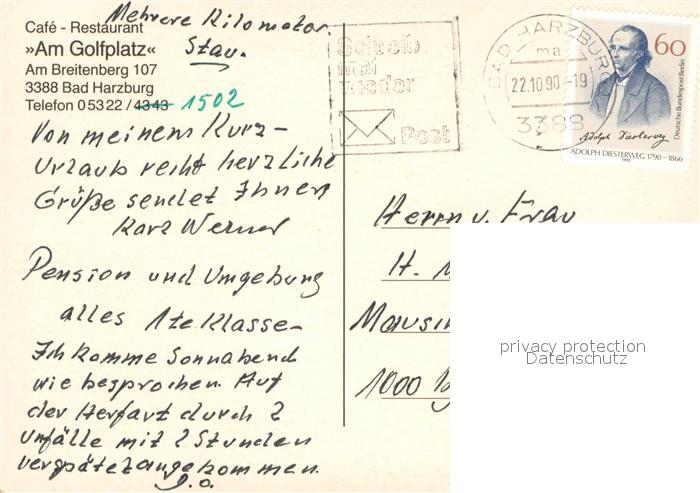 Mehrere Kilometer
Stau.
Café - Restaurant
»Am Golfplatz«
Am Breitenberg 107
3388 Bad Harzburg
Telefon 0 53 22 / 4343 1502
Von meinem Kurz-
Urlaub recht herzliche
Grüße sendet Ihnen
Karl Werner
Pension und Umgebung
alles 1te Klasse-
Ich komme Sonnabend
wie besprochen. Auf
der Herfart durch 2
Unfälle mit 2 Stunden
verspätet angekommen.
Schreib
mal
wieder
Post
BAD HARZBURG
ma
22.10.90-19
3388
60
Deutsche Bundespost Berlin
Adolph Diesterweg
ADOLPH DIESTERWEG 1790 - 1866
1990
Herrn u. Frau
H.
1000
privacy protection
Datenschutz